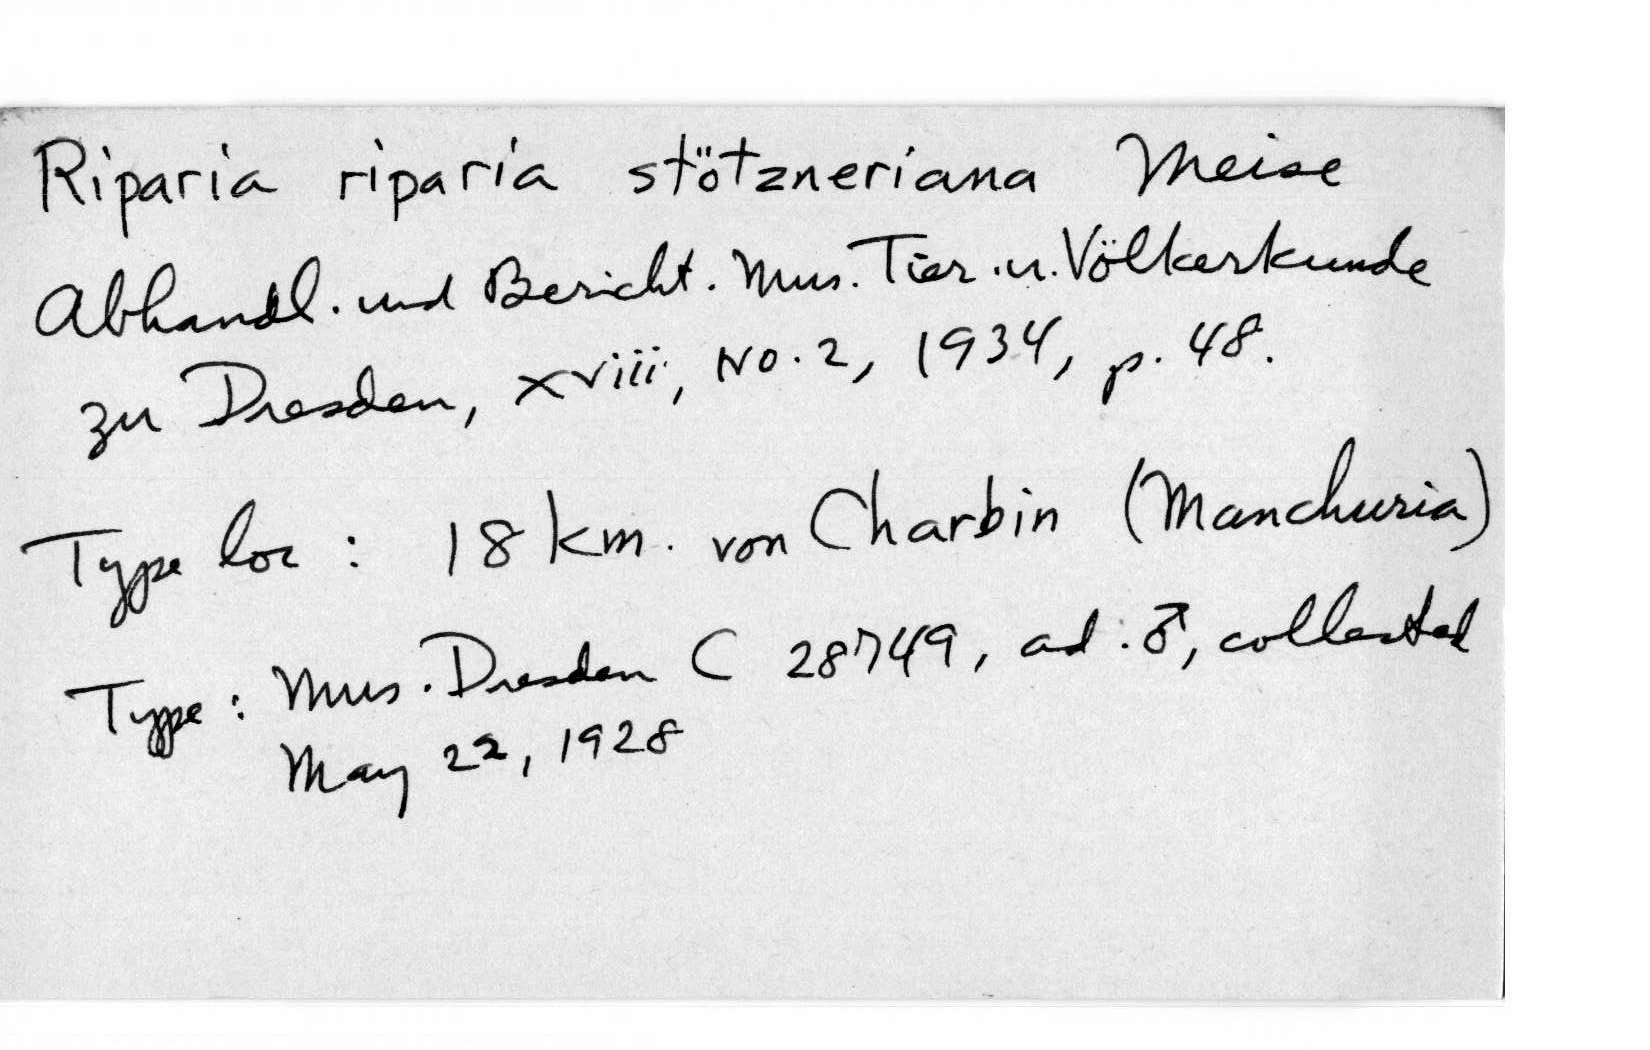 Riparia riparia stötzneriana Meise
Abhandl. und Bericht. Mus. Tier. u. Völkerkunde
zu Dresden, xviii, No. 2, 1934, p. 48.
Type loc : 18 km. von Charbin (Manchuria)
Type : Mus. Dresden C 28749, ad. ♂, collected
May 22, 1928